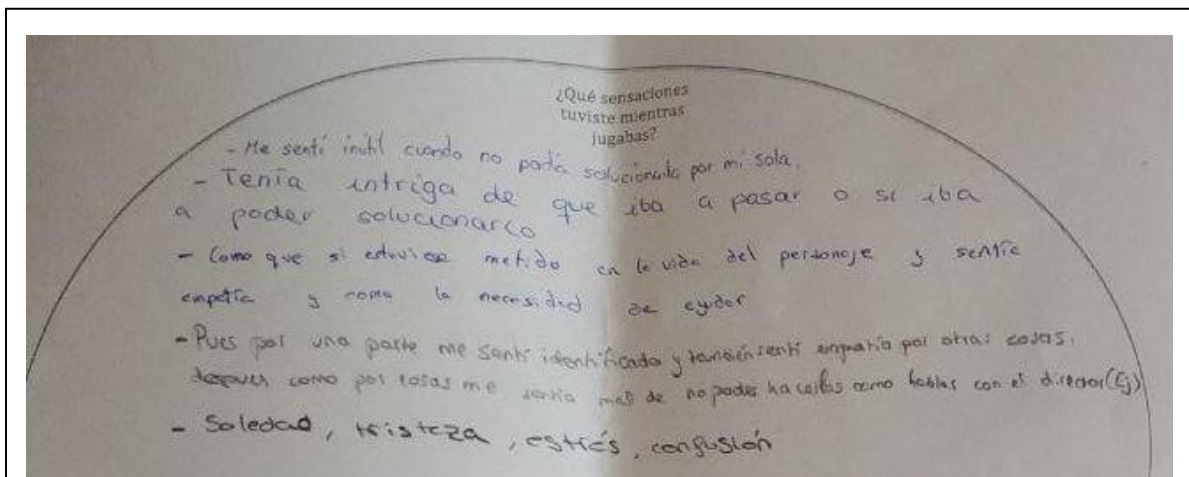 ¿Qué sensaciones
tuviste mientras
jugabas?
- Me sentí inútil cuando no podía solucionarlo por mi sola.
- Tenía intriga de que iba a pasar o si iba
a poder solucionarlo
- Como que si estuviese metido en la vida del personaje y sentía
empatía y como la necesidad de ayudar
- Pues por una parte me sentí identificada y también sentí empatía por otras cosas,
despues como por cosas me sentía mal de no poder hacerlas como hablar con el director (Ej)
- Soledad, tristeza, estrés, confusión